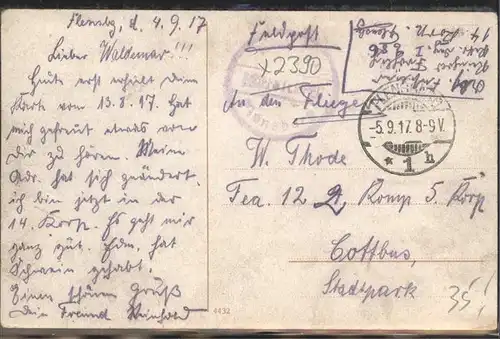 Flensbg, d. 4.9.17
Lieber Waldemar!!!
Heute erst erhielt deine
Karte vom 13.8.17. Hat
mich gefreut etwas von
Dir zu hören. Meine
Adr. hat sich geändert,
ich bin jetzt in der
14. Korp. Es geht mir
ganz gut. Edm. hat
Schwein gehabt.
Einen schönen Gruß
Dein Freund Reinhold
Feldpost
x 2390
An den Flieger
W. Thode
Fea. 12 2. Komp 5. Korp
Cottbus,
Stadtpark
-5.9.17. 8-9V.
* 1 h
4432
35!
14 Korp.